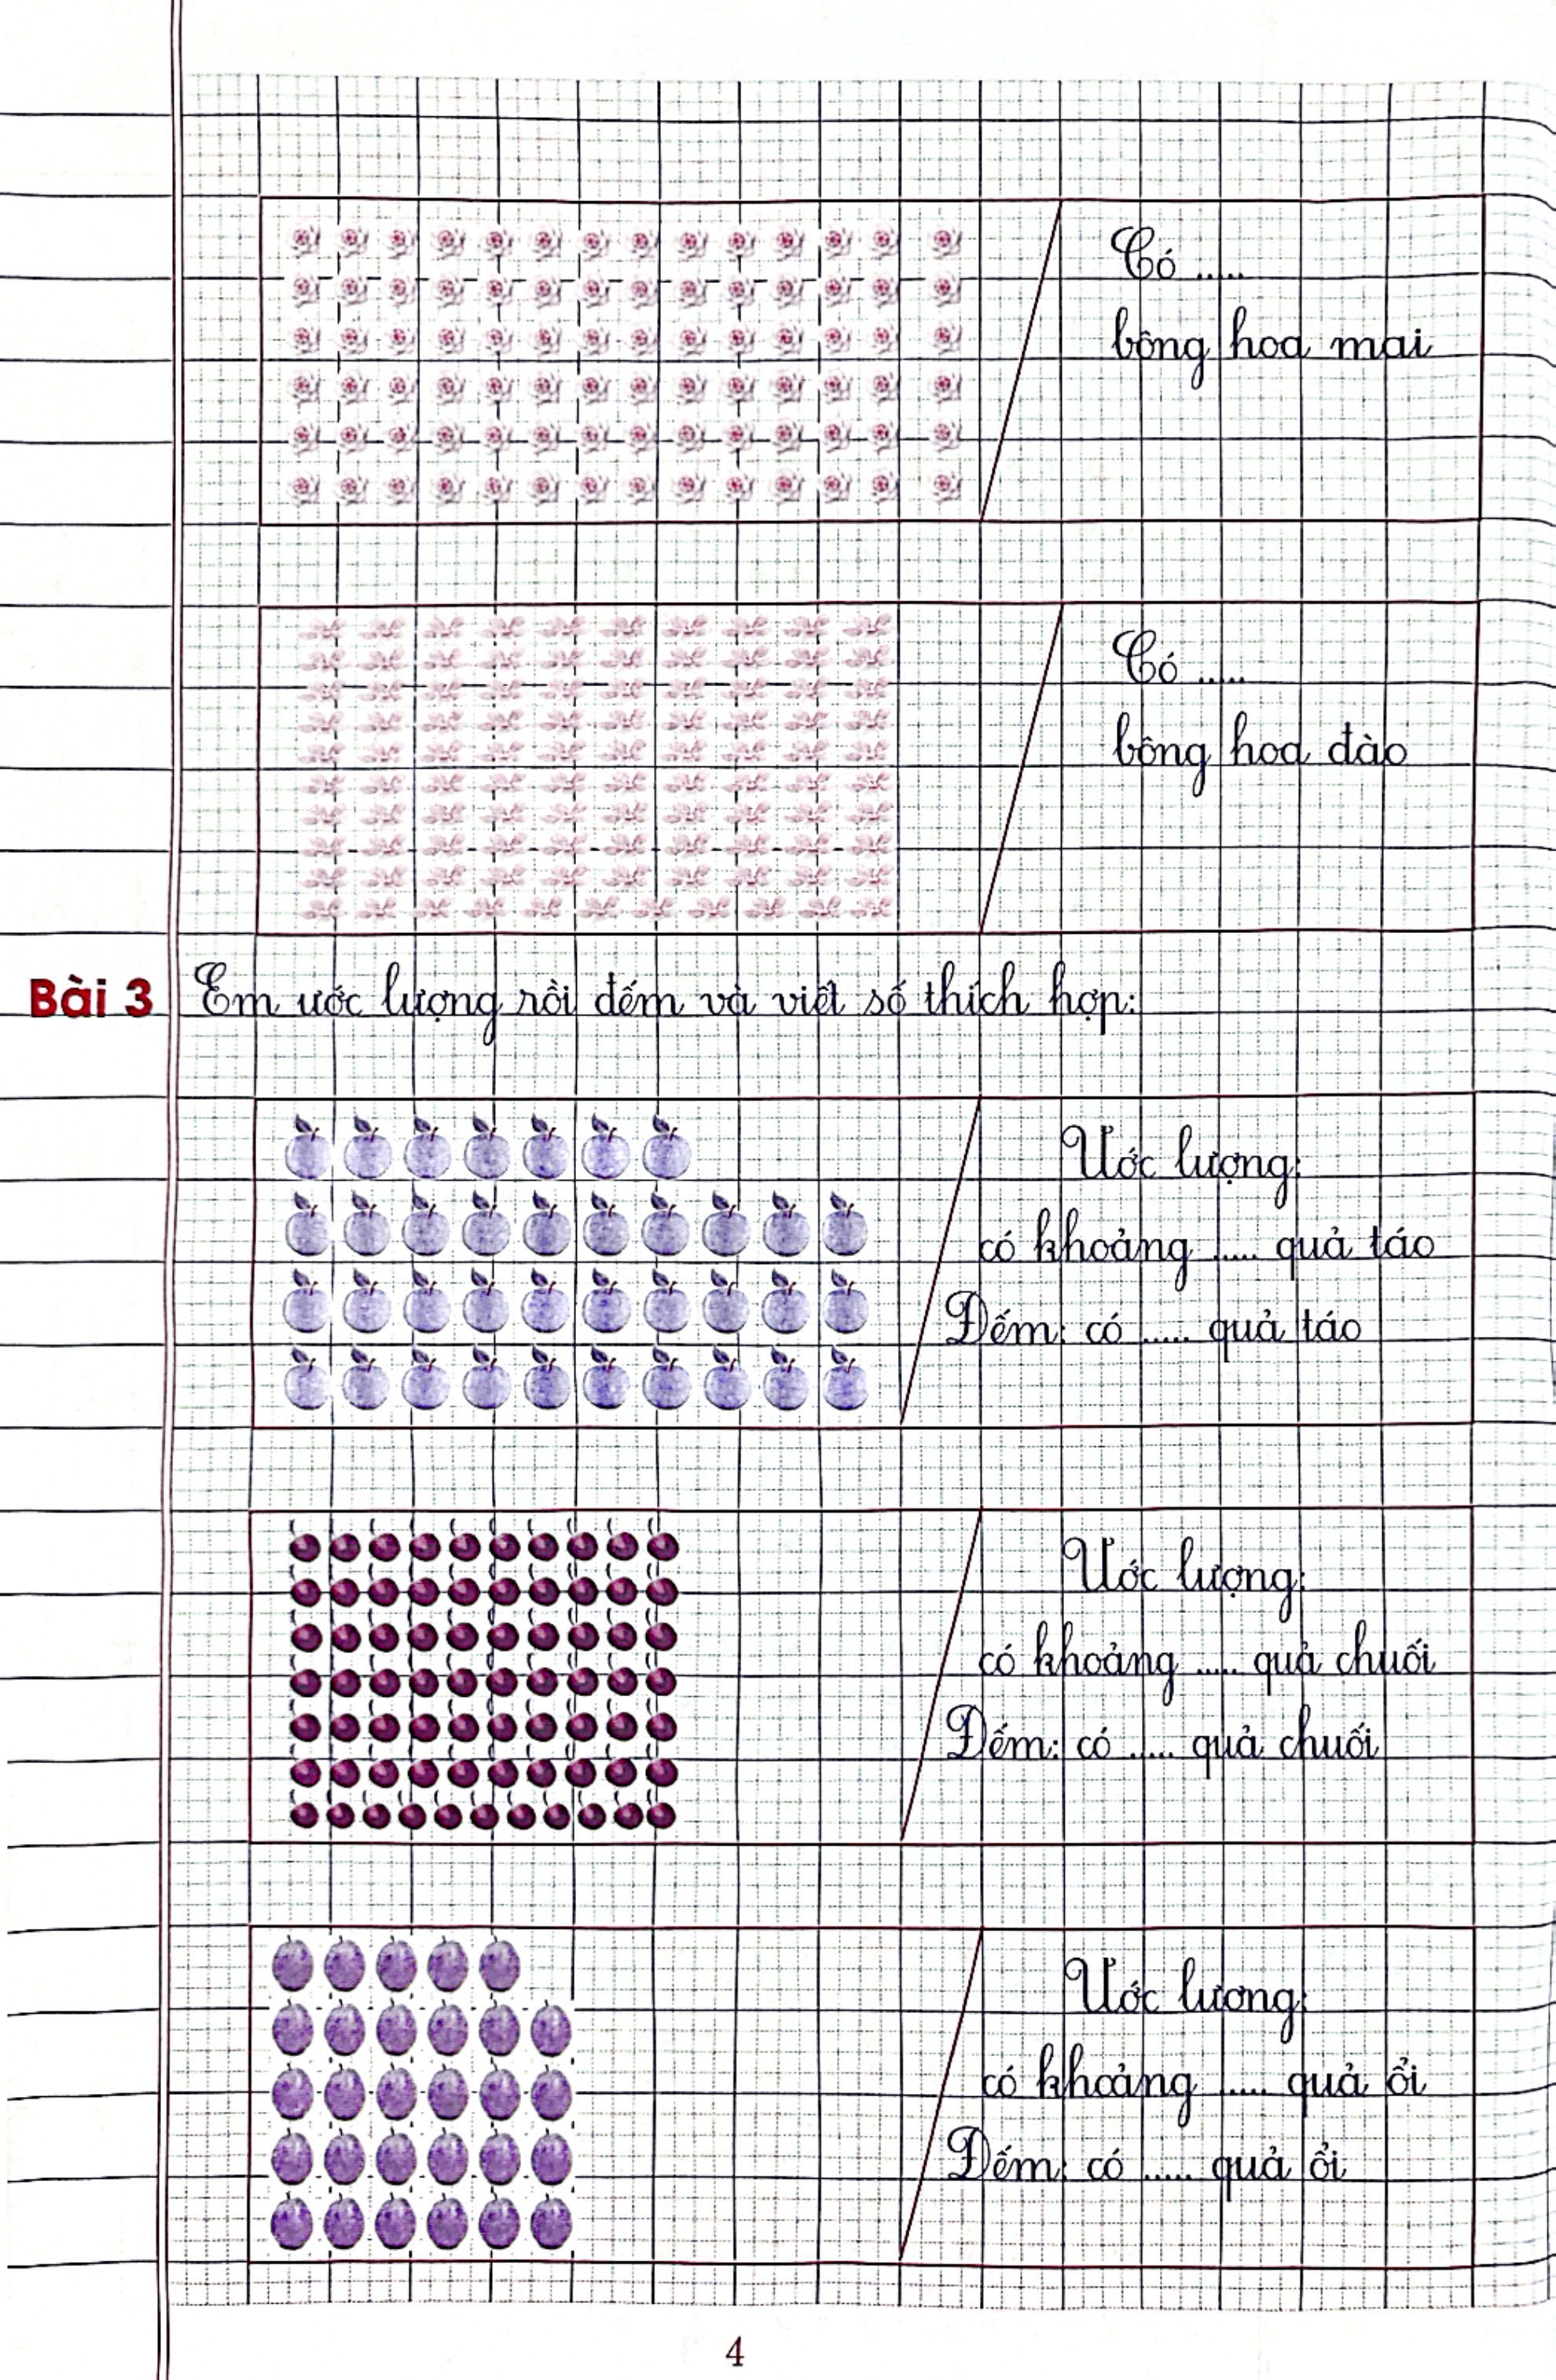 Có .....
bông hoa mai
Có .....
bông hoa đào
Bài 3 Em ước lượng rồi đếm và viết số thích hợp:
Ước lượng:
có khoảng ..... quả táo
Đếm: có ..... quả táo
Ước lượng:
có khoảng ..... quả chuối
Đếm: có ..... quả chuối
Ước lượng:
có khoảng ..... quả ổi
Đếm: có ..... quả ổi
4